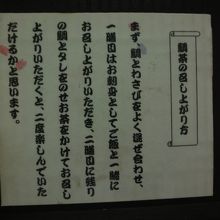 鯛茶の召し上がり方
まず、鯛とわさびをよく混ぜ合わせ、
一膳目はお刺身としてご飯と一緒に
お召し上がりいただき、二膳目に残り
の鯛とタレをのせお茶をかけてお召し
上がりいただくと、二度楽しんでいた
だけるかと思います。